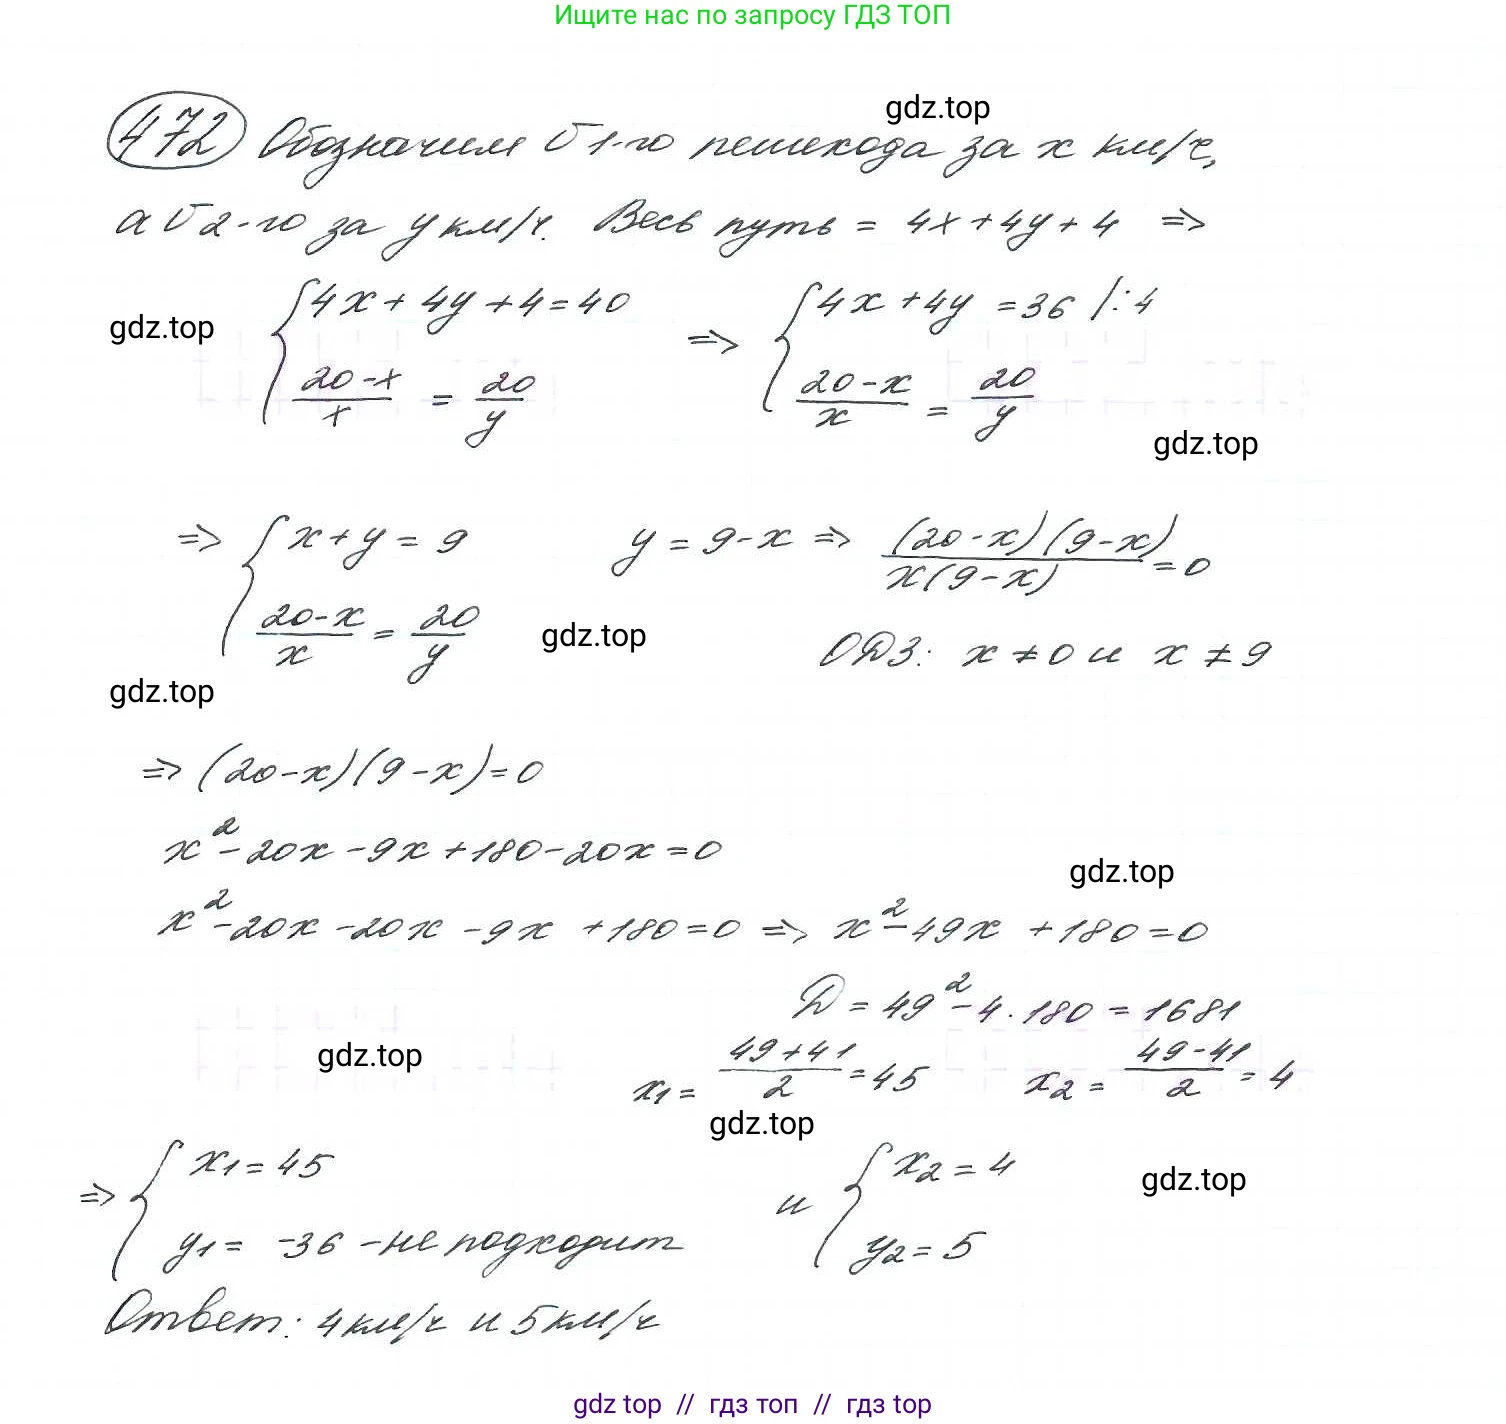 Ищите нас по запросу ГДЗ ТОП
gdz.top
472 Обозначим v 1-го пешехода за x км/ч,
а v 2-го за y км/ч. Весь путь = 4x + 4y + 4 =>
gdz.top
{ 4x + 4y + 4 = 40 => { 4x + 4y = 36 /:4
(20-x)/x = 20/y (20-x)/x = 20/y
gdz.top
=> { x + y = 9 y = 9-x => (20-x)(9-x)/x(9-x) = 0
(20-x)/x = 20/y gdz.top ОДЗ: x ≠ 0 и x ≠ 9
gdz.top
=> (20-x)(9-x) = 0
x² - 20x - 9x + 180 - 20x = 0
gdz.top
x² - 20x - 20x - 9x + 180 = 0 => x² - 49x + 180 = 0
D = 49² - 4·180 = 1681
gdz.top
x1 = (49+41)/2 = 45 x2 = (49-41)/2 = 4
gdz.top
=> { x1 = 45 и { x2 = 4
gdz.top
y1 = -36 - не подходит y2 = 5
Ответ: 4 км/ч и 5 км/ч
gdz top // гдз топ // gdz top